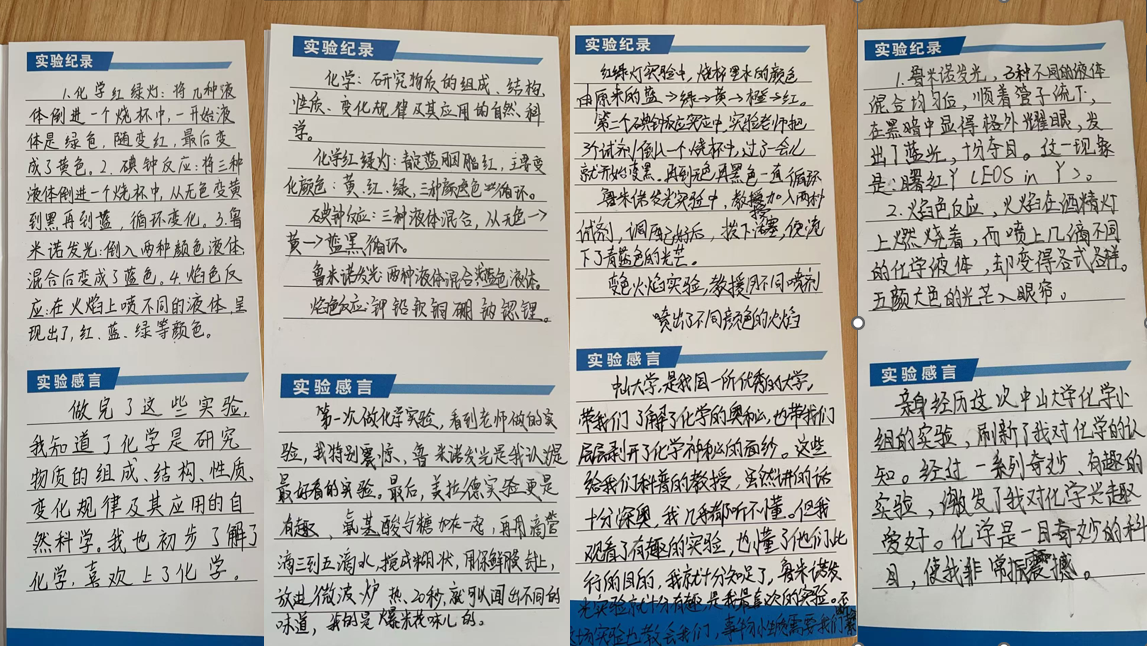 实验纪录
1.化学红绿灯:将几种液
体倒进一个烧杯中,一开始液
体是绿色,随变红,最后变
成了黄色。2.碘钟反应:将三种
液体倒进一个烧杯中,从无色变黄
到黑再到蓝,循环变化。3.鲁
米诺发光:倒入两种颜色液体,
混合后变成了蓝色。4.焰色反
应:在火焰上喷不同的液体,呈
现出了,红、蓝、绿等颜色。
实验感言
做完了这些实验,
我知道了化学是研究
物质的组成、结构、性质、
变化规律及其应用的自
然科学。我也初步了解了
化学,喜欢上了化学。
实验纪录
化学:研究物质的组成、结构、
性质、变化规律及其应用的自然科
学。
化学红绿灯:靛蓝胭脂红,主要变
化颜色:黄、红、绿,三种颜色循环。
碘钟反应:三种液体混合,从无色→
黄→蓝黑循环。
鲁米诺发光:两种液体混合 蓝色液体。
焰色反应:钾 铅 钦 铜 硼 钠 锶 锂。
实验感言
第一次做化学实验,看到老师做的实
验,我特别震惊、鲁米诺发光是我认为是
最好看的实验。最后,美拉德实验更是
有趣,氨基酸与糖加在一起,再用滴管
滴三到五滴水,搅成糊状,用保鲜膜封上,
放进微波炉 热、20秒,就可以闻出不同的
味道,我的是爆米花味儿的。
实验纪录
红绿灯实验中,烧杯里水的颜色
由原来的蓝→绿→黄→橙→红。
第二个碘钟反应实验中,实验老师把
3个试剂倒入一个烧杯中,过了一会儿
就开始变黑,再到无色再黑色一直循环
鲁米诺发光实验中,教授加入两种
试剂,调配好后,按下活塞,便流
下了有蓝色的光芒。
变色火焰实验,教授用不同喷剂
喷出了不同颜色的火焰
实验感言
中山大学,是我国一所优秀的大学,
带我们了解了化学的奥秘,也带我们
层层剥开了化学神秘的面纱。这些
给我们科普的教授,虽然讲的话
十分深奥,我几乎都听不懂。但我
观看了有趣的实验,也懂了他们此
行的目的,我就十分知足了,鲁米诺发
光实验就十分有趣是我最喜欢的实验。
场实验也教会我们,事物
实验纪录
1.鲁米诺发光,3种不同的液体
混合均匀位,顺着管子流下,
在黑暗中显得格外耀眼,发
出了蓝光,十分夺目。这一现象
是:曙红Y(EOS in Y)。
2.火焰色反应,火焰在酒精灯
上燃烧着,而喷上几滴不同
的化学液体,却变得各式各样。
五颜六色的光芒入眼帘。
实验感言
亲身经历这次中山大学化学小
组的实验,刷新了我对化学的认
知。经过一系列奇妙、有趣的
实验,激发了我对化学兴趣
爱好。化学是一目奇妙的科
目,使我非常振震撼。